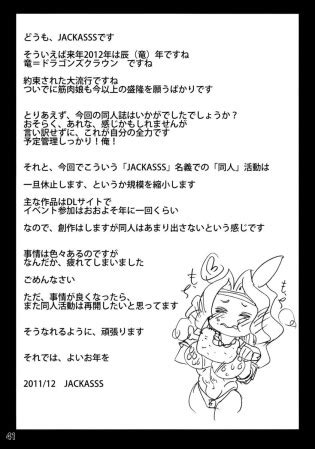 どうも、JACKASSSです
そういえば来年2012年は辰（竜）年ですね
竜＝ドラゴンズクラウン　ですね
約束された大流行ですね
ついでに筋肉娘も今以上の盛隆を願うばかりです
とりあえず、今回の同人誌はいかがでしたでしょうか？
おそらく、あれな、感じかもしれませんが
言い訳せずに、これが自分の全力です
予定管理しっかり！俺！
それと、今回でこういう「JACKASSS」名義での「同人」活動は
一旦休止します、というか規模を縮小します
主な作品はDLサイトで
イベント参加はおおよそ年に一回くらい
なので、創作はしますが同人はあまり出さないという感じです
事情は色々あるのですが
なんだか、疲れてしまいました
ごめんなさい
ただ、事情が良くなったら、
また同人活動は再開したいと思ってます
そうなれるように、頑張ります
それでは、よいお年を
2011/12　JACKASSS
41